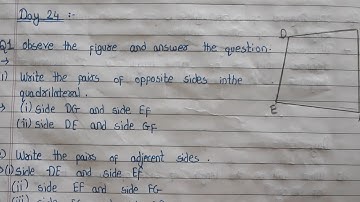 Day 24 :-
Q1 obseve the figure and answer the question:
→
1) Write the pairs of opposite sides inthe
quadrilateral.
→ (i) side DG and side EF
(ii) side DE and side GF
) Write the pairs of adjecent sides.
→(i) side DE and side EF
(ii) side EF and side FG
D
E